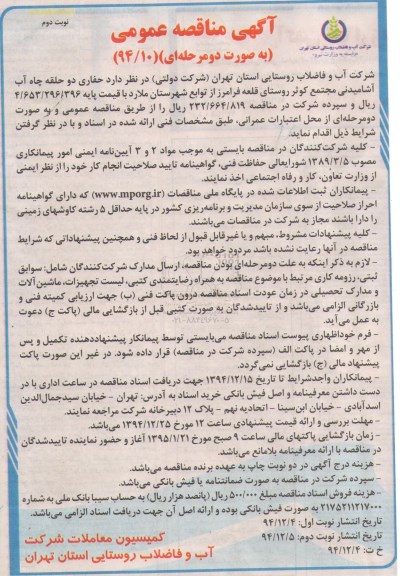 نوبت دوم
آگهی مناقصه عمومی
(به صورت دومرحله‌ای)(۹۴/۱۰)
شرکت آب و فاضلاب روستایی استان تهران
شرکت آب و فاضلاب روستایی استان تهران (شرکت دولتی) در نظر دارد حفاری دو حلقه چاه آب
آشامیدنی مجتمع کوثر روستای قلعه فرامرز از توابع شهرستان ملارد با قیمت پایه ۴/۶۵۳/۲۹۶/۳۹۶
ریال و سپرده شرکت در مناقصه ۲۳۲/۶۶۴/۸۱۹ ریال را از طریق مناقصه عمومی و به صورت
دومرحله‌ای از محل اعتبارات عمرانی، طبق مشخصات فنی ارائه شده در اسناد و با در نظر گرفتن
شرایط ذیل اقدام نماید.
- کلیه شرکت‌کنندگان در مناقصه بایستی به موجب مواد ۲ و ۳ آیین‌نامه ایمنی امور پیمانکاری
مصوب ۱۳۸۹/۳/۵ شورایعالی حفاظت فنی، گواهینامه تایید صلاحیت انجام کار خود را از نظر ایمنی
از وزارت تعاون، کار و رفاه اجتماعی اخذ نمایند.
- پیمانکاران ثبت اطلاعات شده در پایگاه ملی مناقصات (www.mporg.ir) که دارای گواهینامه
احراز صلاحیت از سوی سازمان مدیریت و برنامه‌ریزی کشور در پایه حداقل ۵ رشته کاوشهای زمینی
را دارا باشند مجاز به شرکت در مناقصات می‌باشند.
- کلیه پیشنهادات مشروط، مبهم و یا غیرقابل قبول از لحاظ فنی و همچنین پیشنهاداتی که شرایط
مناقصه در آنها رعایت نشده باشد مردود خواهد بود.
- لازم به ذکر اینکه به علت دومرحله‌ای بودن مناقصه، ارسال مدارک شرکت‌کنندگان شامل: سوابق
ثبتی، رزومه کاری مرتبط با موضوع مناقصه به همراه رضایتمندی کتبی، لیست تجهیزات، ماشین‌آلات
و مدارک تحصیلی در زمان عودت اسناد مناقصه درون پاکت فنی (ب) جهت ارزیابی کمیته فنی و
بازرگانی الزامی می‌باشد و از تاییدشدگان به صورت کتبی قبل از بازگشایی مالی (پاکت ج) دعوت
به عمل می‌آید.
- فرم خوداظهاری پیوست اسناد مناقصه می‌بایستی توسط پیمانکار پیشنهاددهنده تکمیل و پس
از مهر و امضا در پاکت الف (سپرده شرکت در مناقصه) قرار داده شود. در غیر این صورت پاکت
پیشنهاد مالی (ج) بازگشایی نمی‌گردد.
- پیمانکاران واجدشرایط تا تاریخ ۱۳۹۴/۱۲/۱۵ جهت دریافت اسناد مناقصه در ساعت اداری با در
دست داشتن معرفینامه و اصل فیش بانکی خرید اسناد به آدرس: تهران - خیابان سیدجمال‌الدین
اسدآبادی - خیابان ابن‌سینا - اتحادیه نهم - پلاک ۱۲ دبیرخانه شرکت مراجعه نمایند.
- مهلت بررسی و ارائه قیمت پیشنهادی ساعت ۱۲ مورخ ۱۳۹۴/۱۲/۲۵ می‌باشد.
- زمان بازگشایی پاکتهای مالی ساعت ۹ صبح مورخ ۱۳۹۵/۱/۲۱ آغاز و حضور نماینده تاییدشدگان
در مناقصه با ارائه معرفینامه بلامانع می‌باشد.
- هزینه درج آگهی در دو نوبت چاپ به عهده برنده مناقصه می‌باشد.
- سپرده شرکت در مناقصه به صورت ضمانتنامه یا فیش بانکی می‌باشد.
- هزینه فروش اسناد مناقصه مبلغ ۵۰۰/۰۰۰ ریال (پانصد هزار ریال) به حساب سیبا بانک ملی به شماره
۲۱۷۵۲۱۱۲۱۷۰۰۰ به صورت فیش بانکی بوده و ارائه اصل آن جهت دریافت اسناد الزامی می‌باشد.
تاریخ انتشار نوبت اول: ۹۴/۱۲/۴
تاریخ انتشار نوبت دوم: ۹۴/۱۲/۵
خ ت: ۹۴/۱۲/۴
کمیسیون معاملات شرکت
آب و فاضلاب روستایی استان تهران